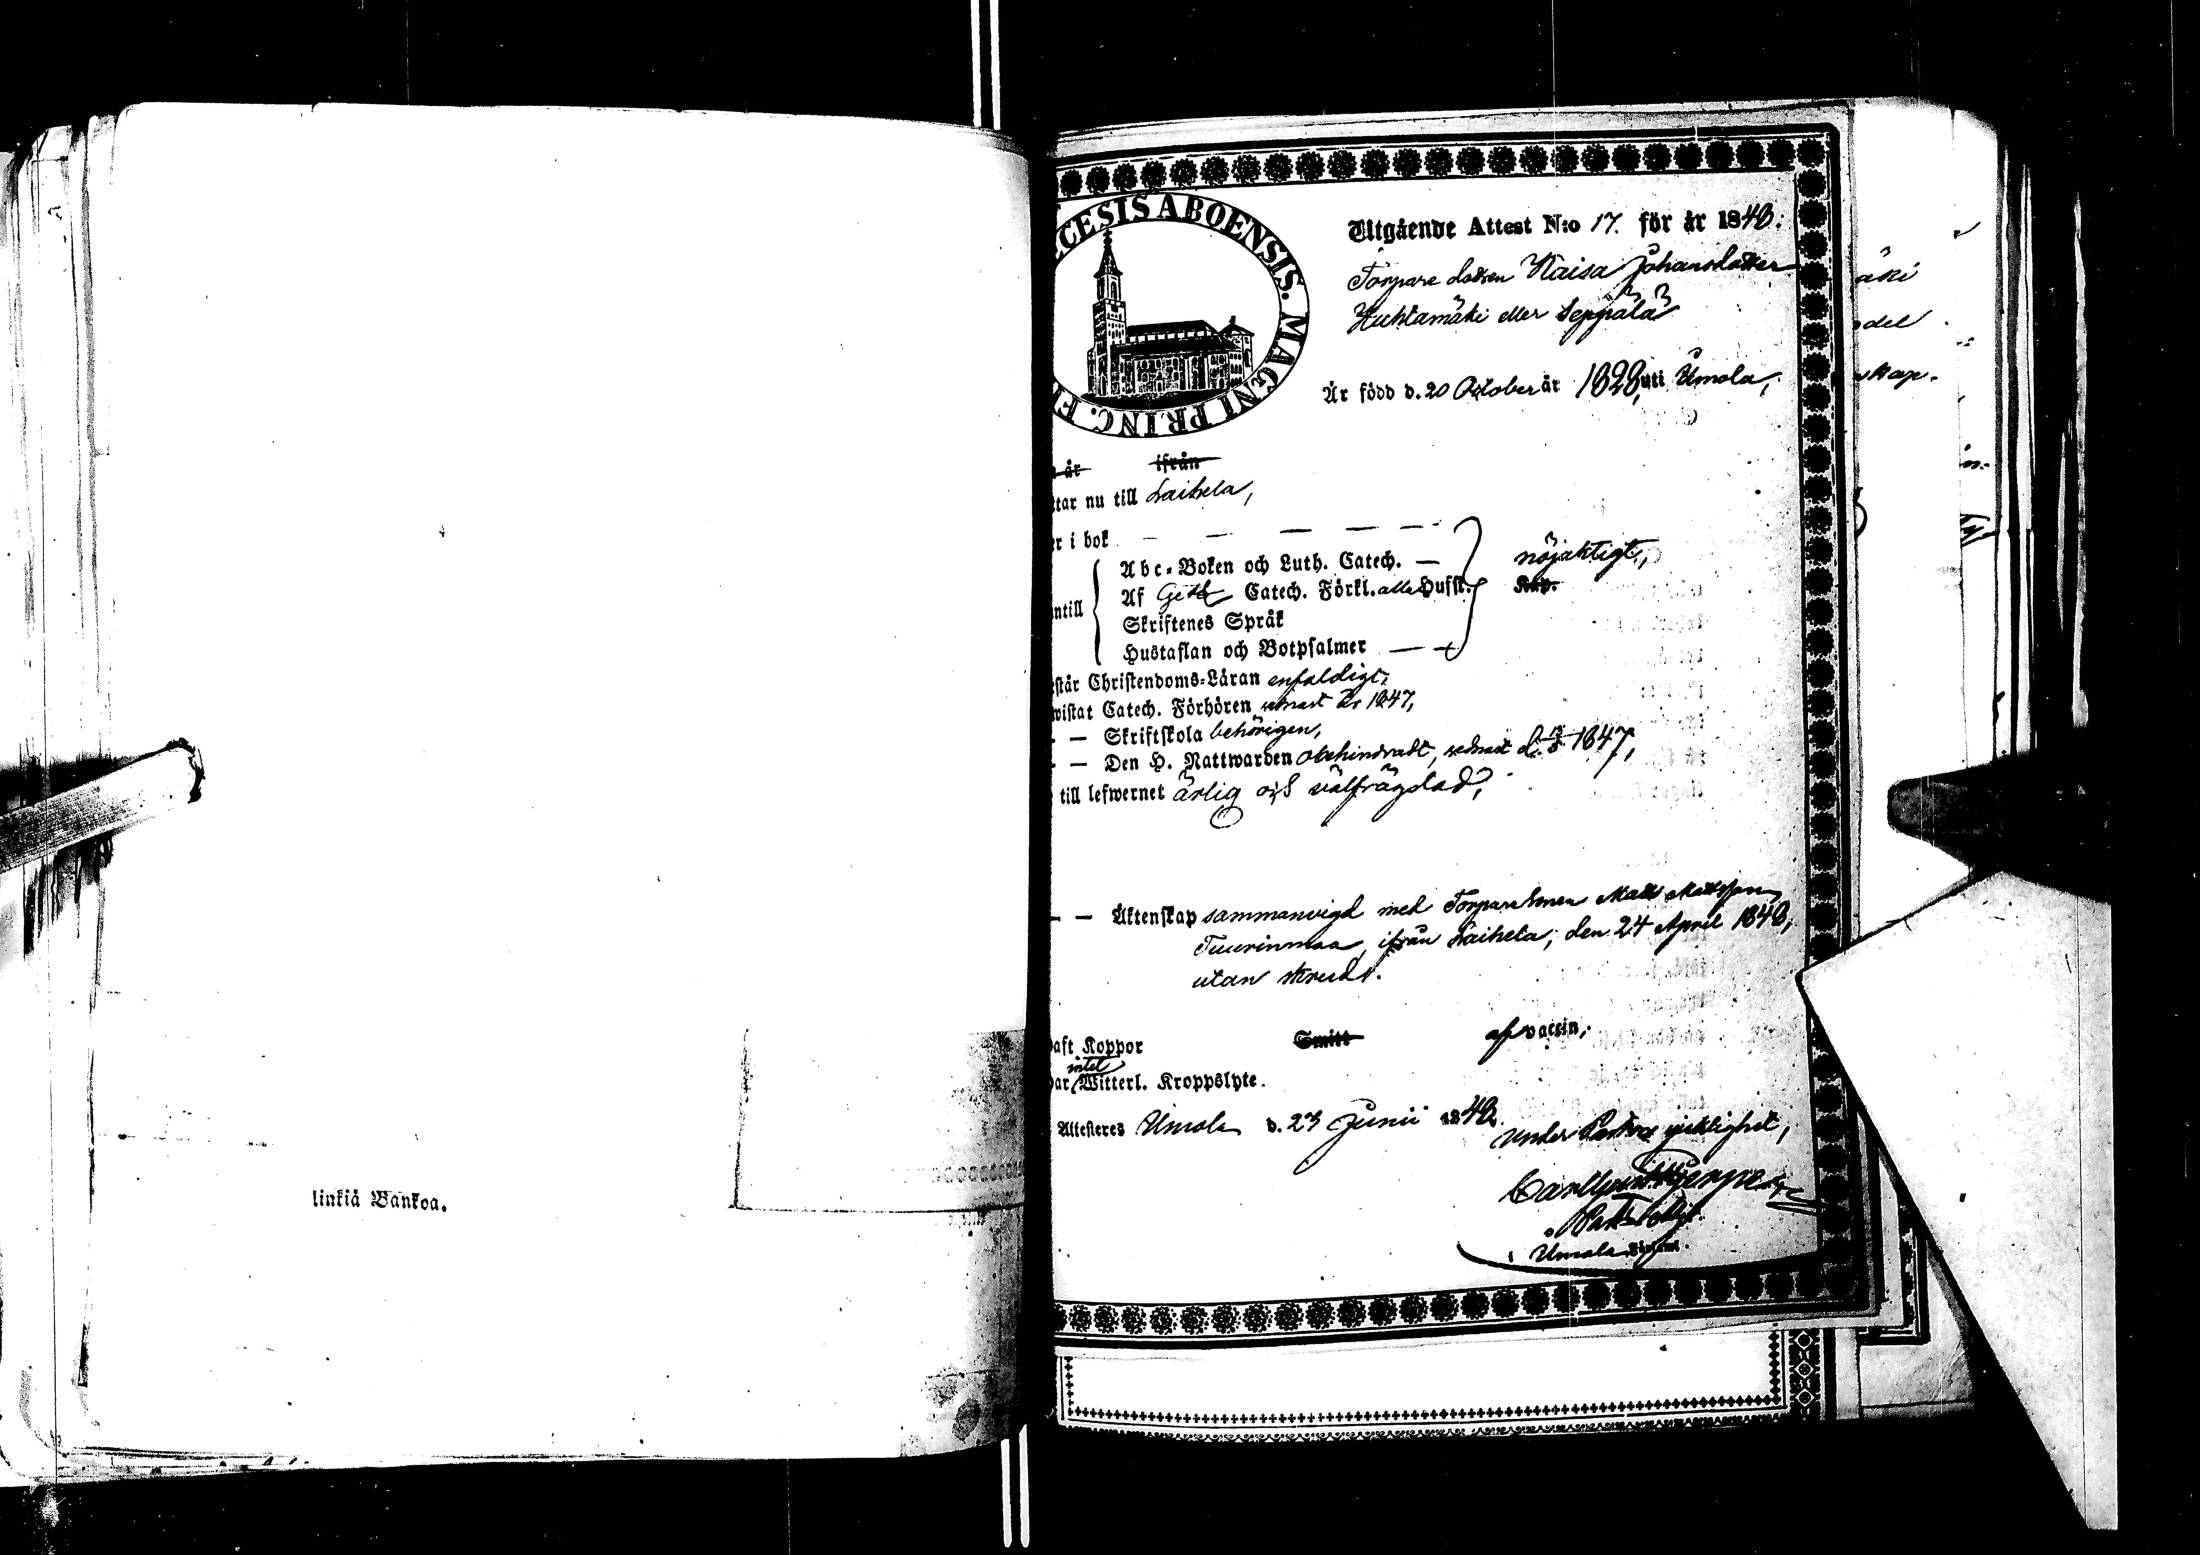 linkiä Bankoa.
CESIS ABOENSIS. MAGNI PRINC. FI
Utgående Attest N:o 17. för år 1848:
Torpare dottren Kaisa Johansdotter
Huhtamäki eller Seppälä
Är född d. 20 October år 1828, uti Umola,
år ifrån
ttar nu till Laihela,
er i bok — — — — —
Abc-Boken och Luth. Catech. — nöjaktigt,
Af Catech. Förkl. alla Hufst. Kap.
ntill
Skriftenes Språk
Hustaflan och Botpsalmer — —
står Christendoms-Läran enfaldigt,
wistat Catech. Förhören sednast år 1847,
— Skriftskola behörigen,
— Den H. Nattwarden obehindradt, sednast d. 1847,
till lefwernet ärlig och välfrägdad,
— — Äktenskap sammanvigd med Torpare Sonen Matts Mattsson
Tuurinmaa, ifrån Laihela, den 24 April 1848,
utan skrud.
aft Koppor Smitt af vaccin,
intet
ar Witterl. Kroppslyte.
Attesteres Umola d. 23 Junii 1848.
Under Pastors
Umola